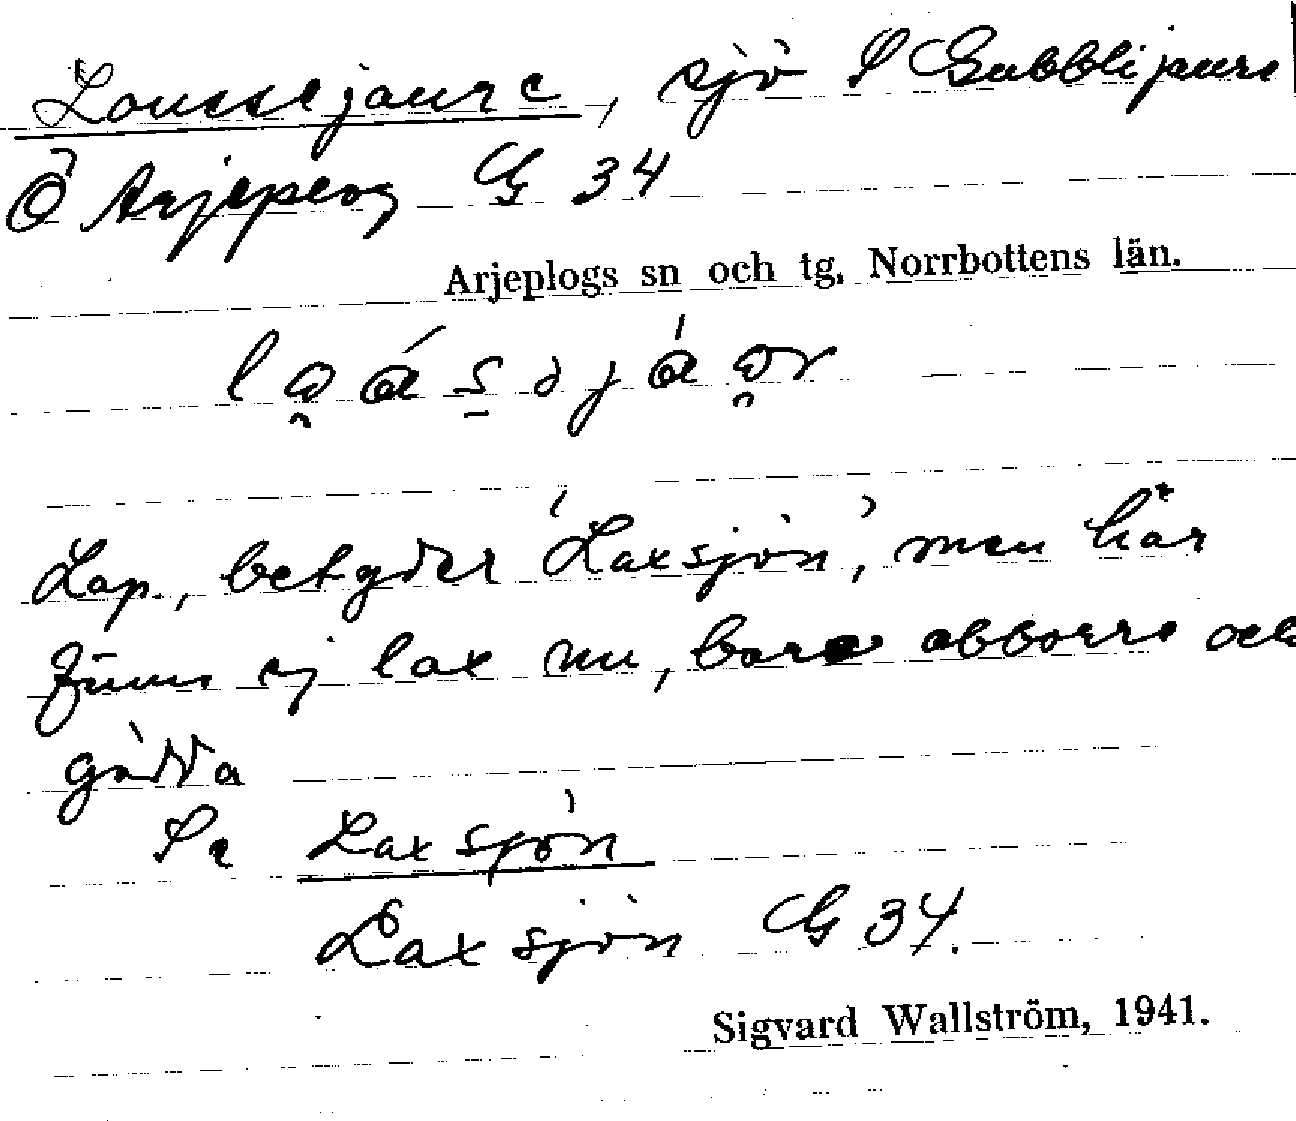 Loussejaure, sjö S Gubblijaure
Ö Arjeplog G 34
Arjeplogs sn och tg, Norrbottens län.
Lap., betyder 'Laxsjön', men här
finns ej lax nu, bara abborre och
gädda
Se Laxsjön
Laxsjön G 34.
Sigvard Wallström, 1941.